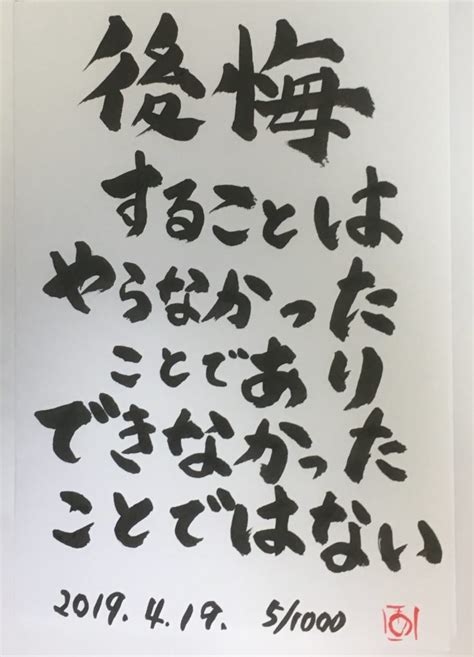 後悔
することは
やらなかった
ことであり
できなかった
ことではない
2019.4.19. 5/1000